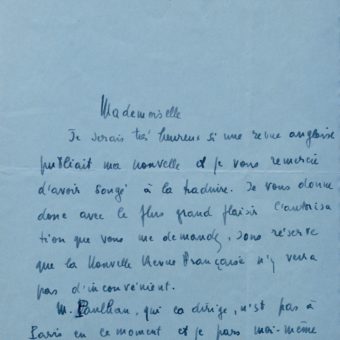 Mademoiselle
Je serais très heureux si une revue anglaise
publiait ma nouvelle et je vous remercie
d'avoir songé à la traduire. Je vous donne
donc avec le plus grand plaisir l'autorisa
tion que vous me demandez, sous réserve
que la Nouvelle Revue Française n'y verra
pas d'inconvénient.
M. Paulhan, qui la dirige, n'est pas à
Paris en ce moment et je pars moi-même